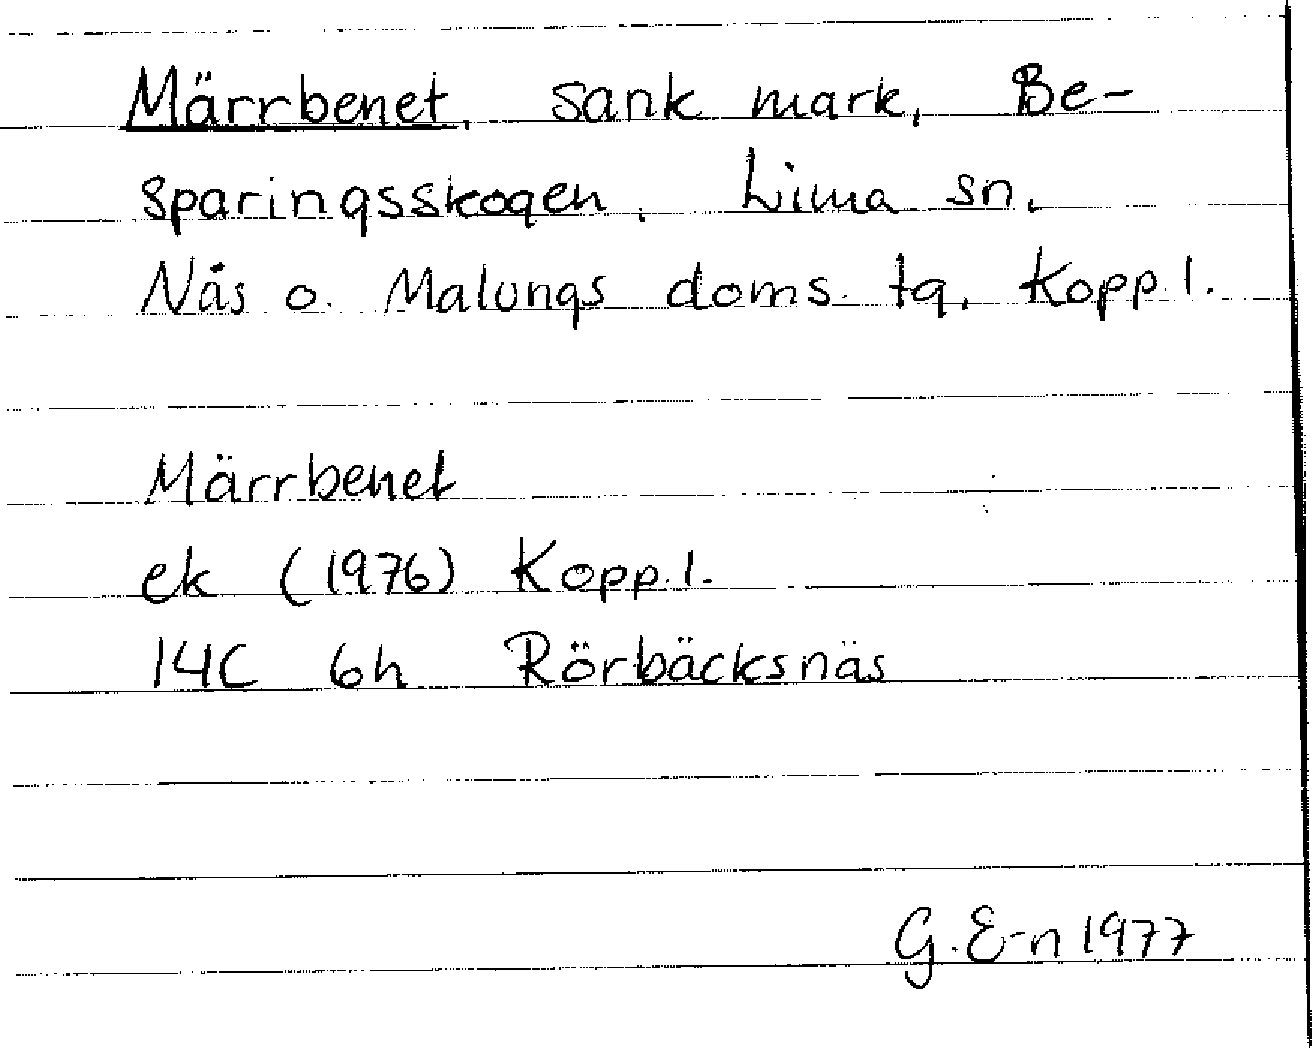 Märrbenet, sank mark, Be-
sparingsskogen. Lima sn.
Nås o. Malungs doms. tg, Kopp. l.
Märrbenet
ek (1976) Kopp. l.
14C 6h Rörbäcksnäs
G. E-n 1977